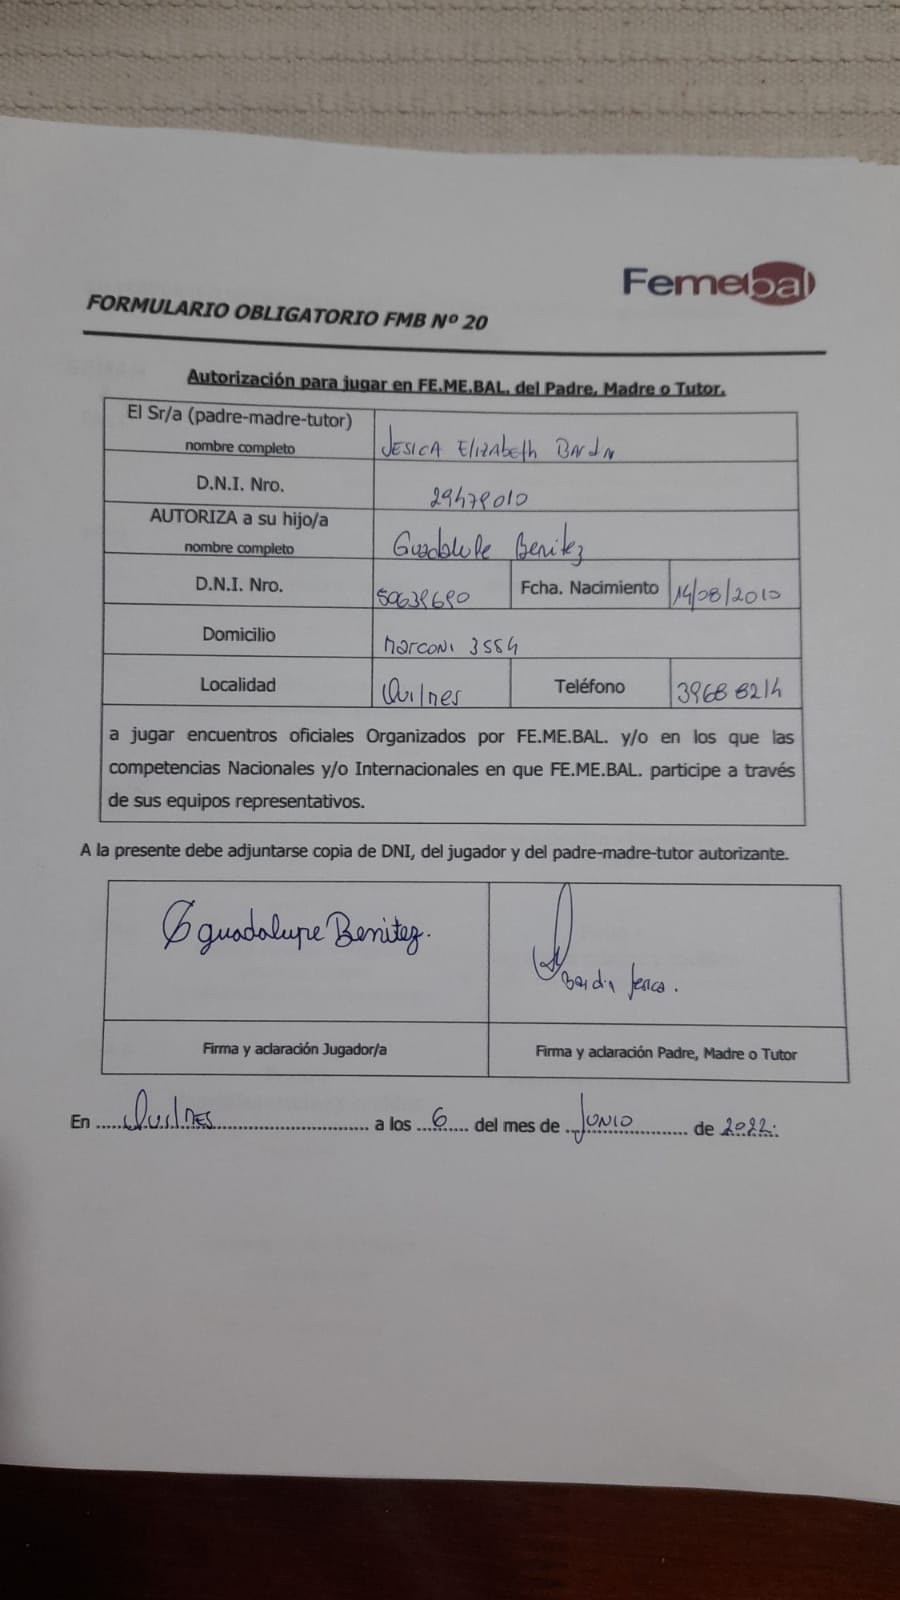 Femebal
FORMULARIO OBLIGATORIO FMB Nº 20
Autorización para jugar en FE.ME.BAL. del Padre, Madre o Tutor.
El Sr/a (padre-madre-tutor)
nombre completo
JESICA Elizabeth Bardin
D.N.I. Nro.
29479010
AUTORIZA a su hijo/a
nombre completo
Guadalupe Benitez
D.N.I. Nro.
50639690
Fcha. Nacimiento
14/08/2010
Domicilio
Marconi 3554
Localidad
Quilmes
Teléfono
3968 8214
a jugar encuentros oficiales Organizados por FE.ME.BAL. y/o en los que las
competencias Nacionales y/o Internacionales en que FE.ME.BAL. participe a través
de sus equipos representativos.
A la presente debe adjuntarse copia de DNI, del jugador y del padre-madre-tutor autorizante.
guadalupe Benitez.
Bardin Jesica.
Firma y aclaración Jugador/a
Firma y aclaración Padre, Madre o Tutor
En Quilmes a los 6 del mes de Junio de 2022.